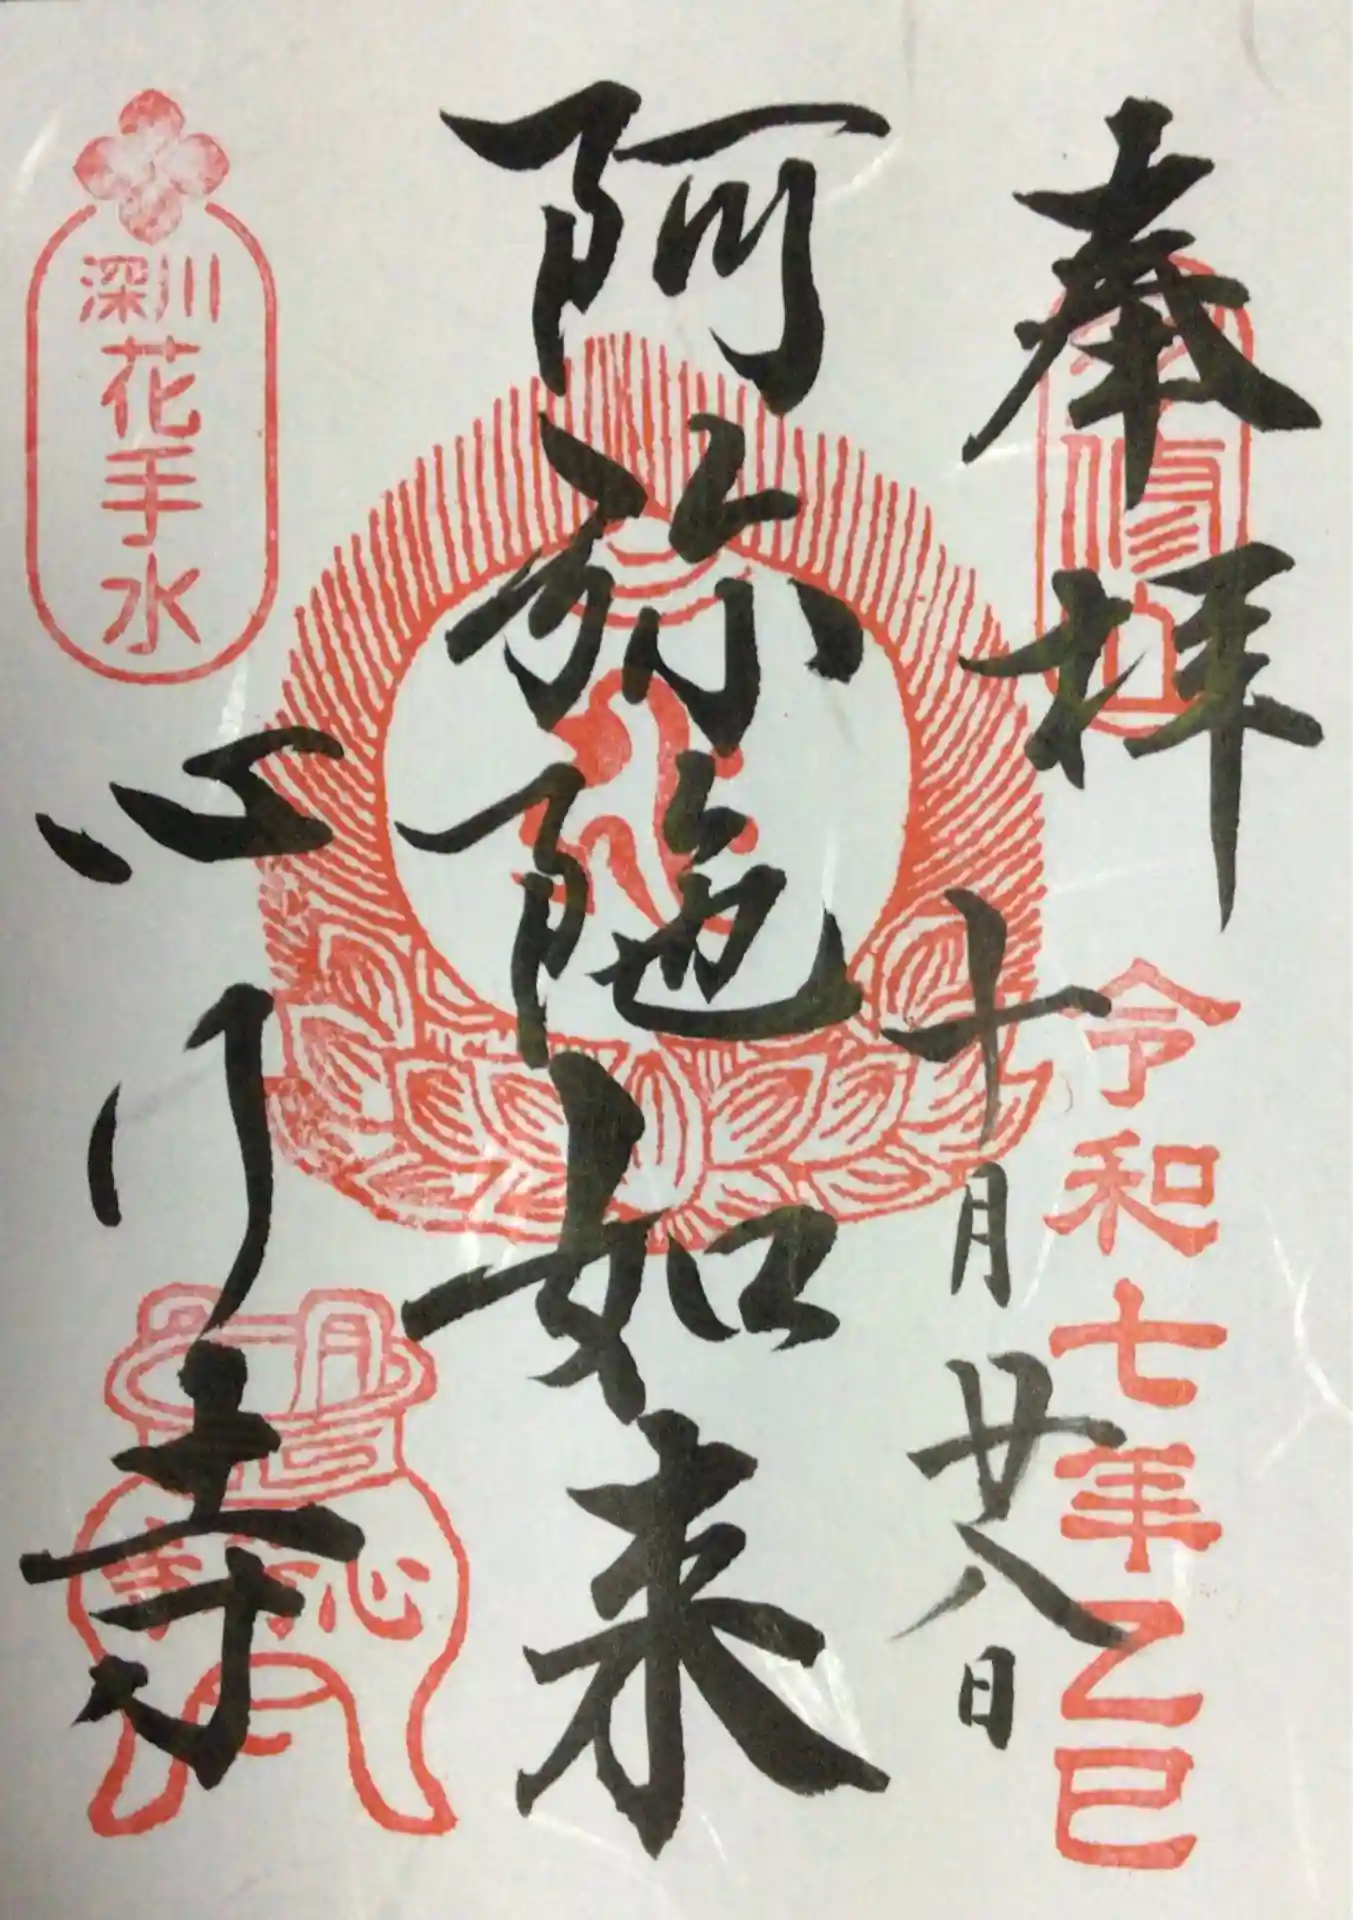 奉拝
令和七年乙巳
十月廿八日
阿弥陀如来
深川
花手水
心行寺